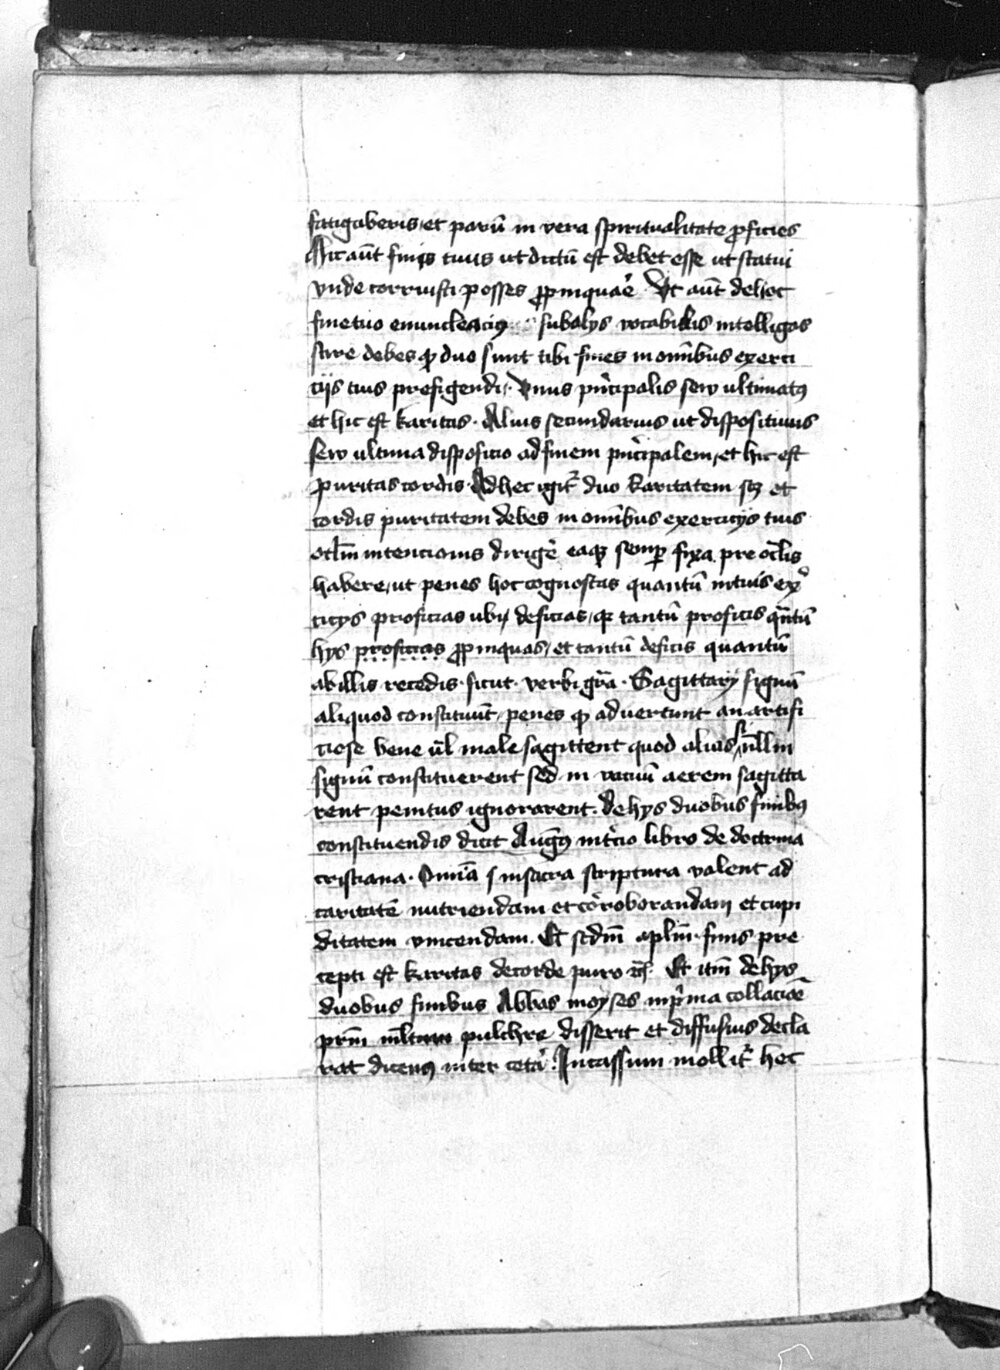 fatigaberis et parū in vera spiritualitate ꝓficies
Hic aūt finis tuus ut dictū est debet esse ut statui
vnde corruisti posses ꝓpinquaē Vt aūt de hoc
fine tuo enuncleacius sub alijs vocabulis intelligas
scire debes ꝙ duo sunt tibi fines in omībus exerci
cijs tuis prefigendi. Vnus pⁱncipalis seu ultimatꝯ
et hic est karitas. Alius secundarius ut dispositiuus
seu ultima disposicio ad finem pⁱncipalem et hic est
puritas cordis Ad hec igit᷑ duo karitatem sꝫ et
cordis puritatem debes in omībus exercicijs tuis
oclm̄ intencionis dirigē eaqꝫ semꝑ fixa pre oclīs
habere ut penes hoc cognoscas quantū in tuis ex̄
cicijs proficias ubi deficias qꝛ tantū proficis qn̄tū
hijs proficias ꝓpinquas et tantū deficis quantū
ab illis recedis sicut verbi gr̄a. Sagittarij signū
aliquod constituūt penes ꝙ aduertunt an artifi
ciose bene ul̄ male sagittent quod alias si nullm
signū constituerent sed in vacuū aerem sagitta
rent penitus ignorarent. De hijs duobus finibꝯ
constituendis dicit Augꝯ in tⁱcio libro de doctrina
cristiana. Omīa in sacra scriptura valent ad
caritatē nutriendam et corroborandam et cupi
ditatem vincendam. Et scdm̄ aplm̄ finis pre
cepti est karitas de corde puro ꝛc̄. Et itm̄ de hijs
duobus finibus Abbas moyses in pⁱma collacioē
prm̄ ml̄tum pulchre disserit et diffusius decla
rat dicens inter cetā. Incassum mollit᷑ hec